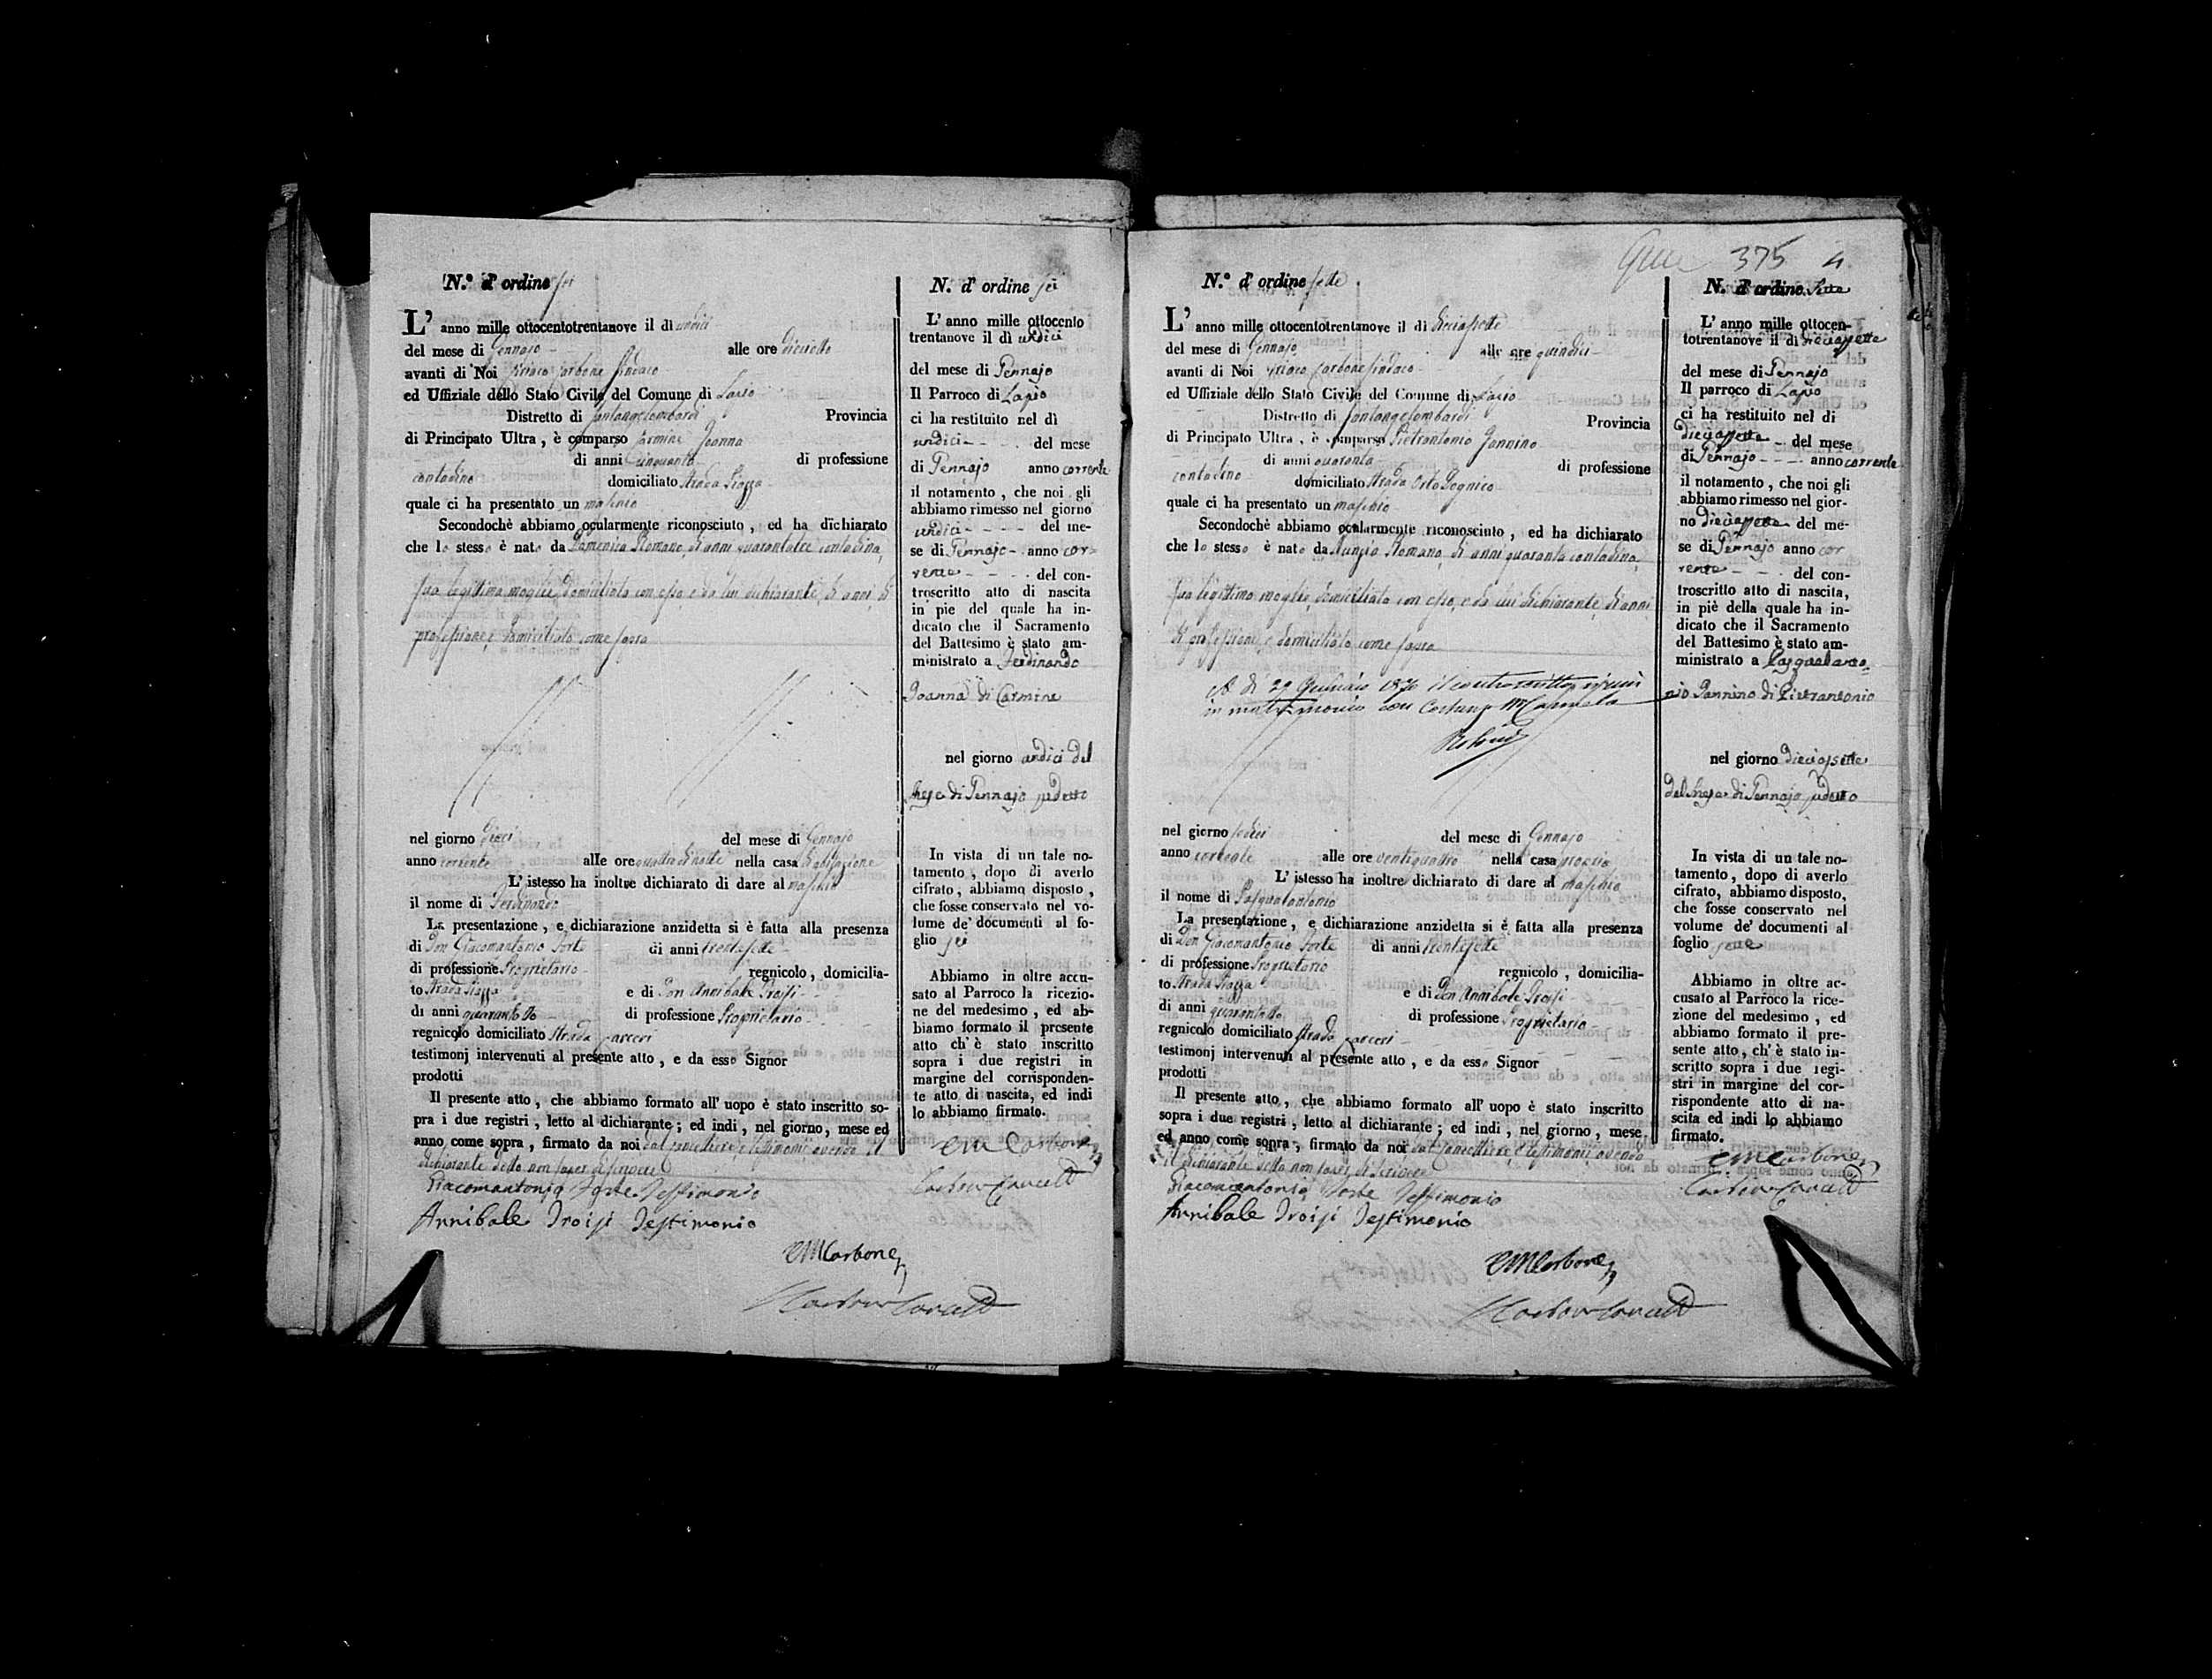 N.º d'ordine sei
L'anno mille ottocentotrentanove il dì undici
del mese di Gennajo alle ore dieciotto
avanti di Noi Carbone Sindaco
ed Uffiziale dello Stato Civile del Comune di Lapio
Distretto di Santangelombardi Provincia
di Principato Ultra, è comparso Carmine Joanna
di anni cinquanta di professione
contadino domiciliato Strada Piazza
quale ci ha presentato un maschio
Secondochè abbiamo ocularmente riconosciuto, ed ha dichiarato
che lo stesso è nato da Domenica Romano, di anni quarantatre contadina,
sua legittima moglie, domiciliata con esso, e da lui dichiarante, di anni, di
professione, e domiciliato come sopra
nel giorno dieci del mese di Gennajo
anno corrente alle ore quattro di notte nella casa di abitazione
L'istesso ha inoltre dichiarato di dare al maschio
il nome di Ferdinando
La presentazione, e dichiarazione anzidetta si è fatta alla presenza
di Don Giacomantonio Forte di anni trentasette
di professione Proprietario regnicolo, domicilia-
to Strada Piazza e di Don Annibale Troisi
di anni quarantotto di professione Proprietario
regnicolo domiciliato Strada Carceri
testimonj intervenuti al presente atto, e da esso Signor
prodotti
Il presente atto, che abbiamo formato all'uopo è stato inscritto so-
pra i due registri, letto al dichiarante; ed indi, nel giorno, mese ed
anno come sopra, firmato da noi dal Cancelliere, e testimonii avendo il
dichiarante detto non saper di scrivere
Giacomantonio Forte Testimonio
Annibale Troisi Testimonio
CMCarbone
N. d'ordine sei
L'anno mille ottocento
trentanove il dì undici
del mese di Gennajo
Il Parroco di Lapio
ci ha restituito nel dì
undici del mese
di Gennajo anno corrente
il notamento, che noi gli
abbiamo rimesso nel giorno
undici del me-
se di Gennajo anno cor-
rente del con-
troscritto atto di nascita
in pie del quale ha in-
dicato che il Sacramento
del Battesimo è stato am-
ministrato a Ferdinando
Joanna di Carmine
nel giorno undici del
mese di Gennajo sudetto
In vista di un tale no-
tamento, dopo di averlo
cifrato, abbiamo disposto,
che fosse conservato nel vo-
lume de' documenti al fo-
glio sei
Abbiamo in oltre accu-
sato al Parroco la ricezio-
ne del medesimo, ed ab-
biamo formato il presente
atto ch'è stato inscritto
sopra i due registri in
margine del corrisponden-
te atto di nascita, ed indi
lo abbiamo firmato.
CMCarbone
375 4
N.º d'ordine sette
L'anno mille ottocentotrentanove il dì dieciassette
del mese di Gennajo alle ore quindici
avanti di Noi Carbone Sindaco
ed Uffiziale dello Stato Civile del Comune di Lapio
Distretto di Santangelombardi Provincia
di Principato Ultra, è comparso Pietrantonio Jannino
di anni quaranta di professione
contadino domiciliato Strada Orto
quale ci ha presentato un maschio
Secondochè abbiamo ocularmente riconosciuto, ed ha dichiarato
che lo stesso è nato da Nunzia Romano, di anni quaranta contadina,
sua legittima moglie, domiciliata con esso, e da lui dichiarante, di anni
di professione, e domiciliato come sopra
A dì 29 1870 il controscritto
in matrimonio con
nel giorno sedici del mese di Gennajo
anno corrente alle ore ventiquattro nella casa propria
L'istesso ha inoltre dichiarato di dare al maschio
il nome di Pasqualantonio
La presentazione, e dichiarazione anzidetta si è fatta alla presenza
di Don Giacomantonio Forte di anni trentasette
di professione Proprietario regnicolo, domicilia-
to Strada Piazza e di Don Annibale Troisi
di anni quarantotto di professione Proprietario
regnicolo domiciliato Strada Carceri
testimonj intervenuti al presente atto, e da esso Signor
prodotti
Il presente atto, che abbiamo formato all'uopo è stato inscritto
sopra i due registri, letto al dichiarante; ed indi, nel giorno, mese
ed anno come sopra, firmato da noi dal Cancelliere, e testimonii, avendo
il dichiarante detto non saper di scrivere
Giacomantonio Forte Testimonio
Annibale Troisi Testimonio
CMCarbone
N. d'ordine Sette
L'anno mille ottocen-
totrentanove il dì dieciassette
del mese di Gennajo
Il parroco di Lapio
ci ha restituito nel di
dieciassette del mese
di Gennajo anno corrente
il notamento, che noi gli
abbiamo rimesso nel gior-
no dieciassette del me-
se di Gennajo anno cor
rente del con-
troscritto atto di nascita,
in piè della quale ha in-
dicato che il Sacramento
del Battesimo è stato am-
ministrato a Pasqualanto-
nio Jannino di Pietrantonio
nel giorno dieciassette
del mese di Gennajo sudetto
In vista di un tale no-
tamento, dopo di averlo
cifrato, abbiamo disposto,
che fosse conservato nel
volume de' documenti al
foglio sette
Abbiamo in oltre ac-
cusato al Parroco la rice-
zione del medesimo, ed
abbiamo formato il pre-
sente atto, ch'è stato in-
scritto sopra i due regi-
stri in margine del cor-
rispondente atto di na-
scita ed indi lo abbiamo
firmato.
CMCarbone